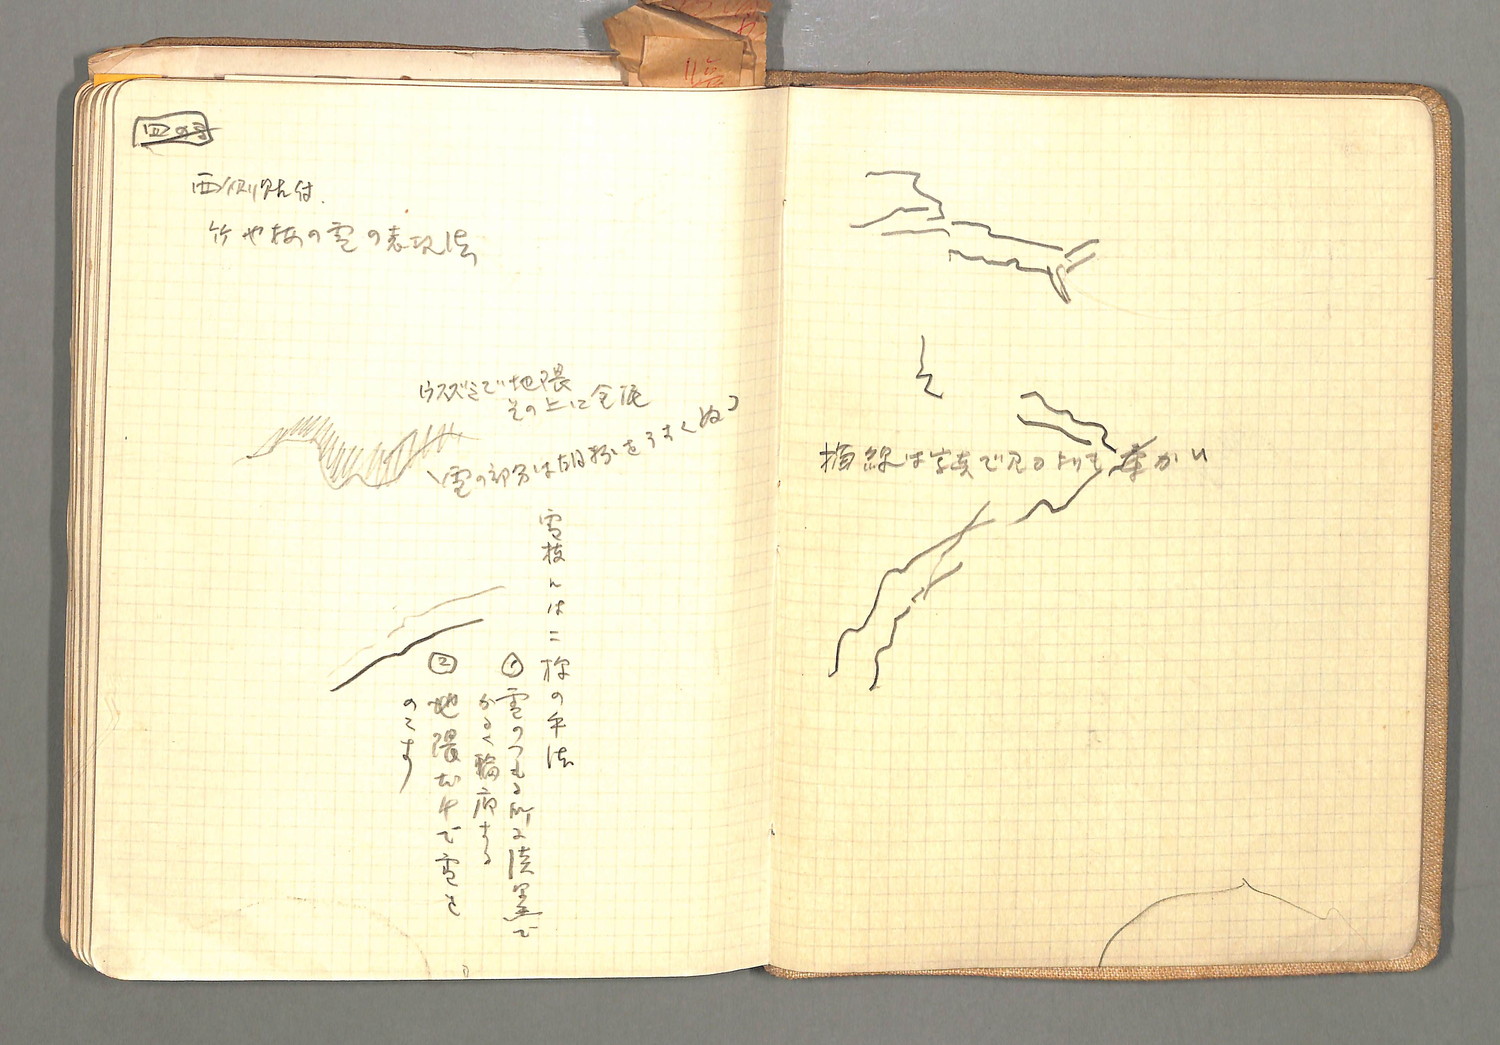 四の間
西側貼付
竹や枝の雪の表現法
ウスズミで地隈
その上に金泥
雪の部分は胡粉をうすくぬる
雪枝には二種の手法
① 雪のつもる所を淡墨で
かるく輪廓する
② 地隈だけで雪を
のこす
描線は写真で見るよりも柔かい